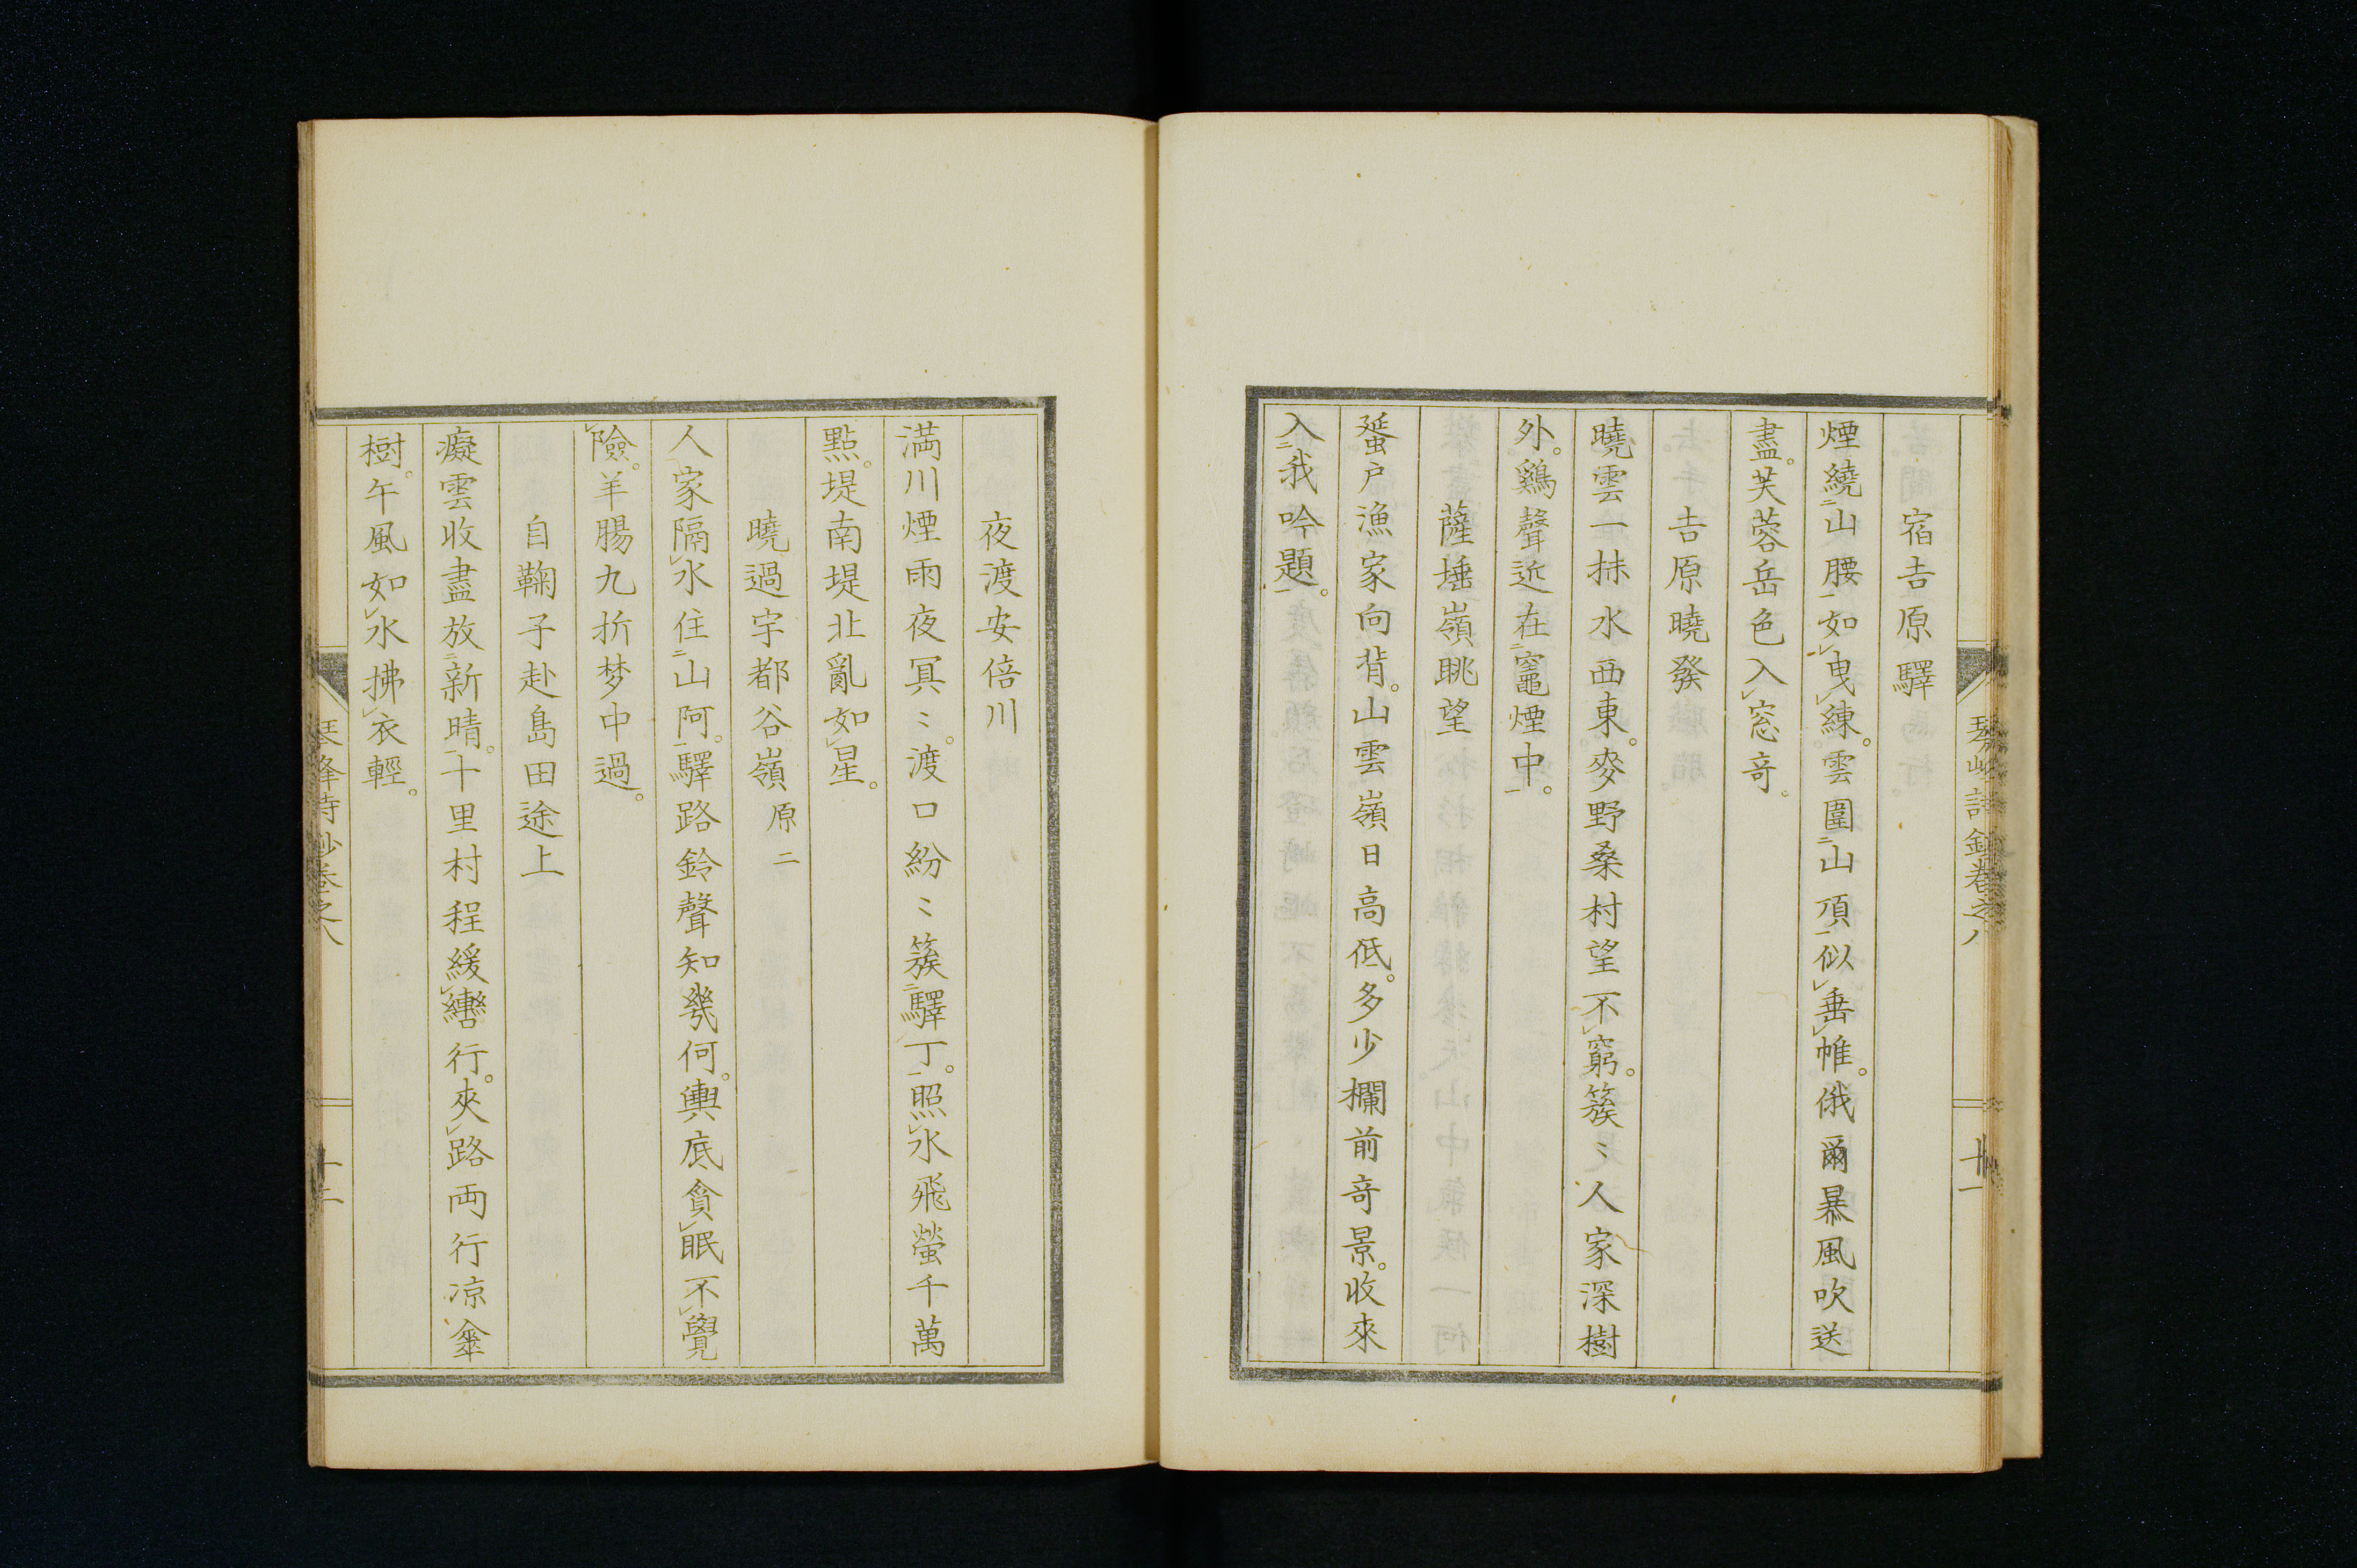 宿吉原驛
煙繞二山腰一如レ曳レ練。雲圍二山頂一似レ垂レ帷。俄爾暴風吹送
盡。芙蓉岳色入レ窓奇。
吉原曉發
曉雲一抹水西東。麥野桑村望不レ窮。簇〻人家深樹
外。鷄聲近在二竈煙中一。
薩埵嶺眺望
蜑戸漁家向背。山雲嶺日高低。多少欄前奇景。收來
入二我吟題一。
琴峰詩鈔卷之八
十一
夜渡安倍川
満川煙雨夜冥〻。渡口紛〻簇二驛丁一。照レ水飛螢千萬
點。堤南堤北亂如レ星。
曉過宇都谷嶺 原二
人家隔レ水住二山阿一。驛路鈴聲知幾何。輿底貪レ眠不レ覺
レ險。羊腸九折梦中過。
自鞠子赴島田途上
癡雲收盡放二新晴一。十里村程緩レ轡行。夾レ路両行凉傘
樹。午風如レ水拂レ衣輕。
琴峰詩鈔卷之八
十二